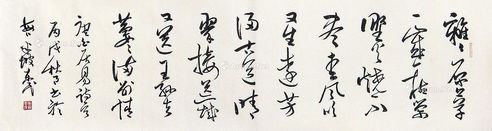 離〻原上草
一歲一枯榮
野火燒不
盡春風吹
又生遠芳
侵古道晴
翠接荒城
又送王孫去
萋〻滿別情
白居易詩
丙戌